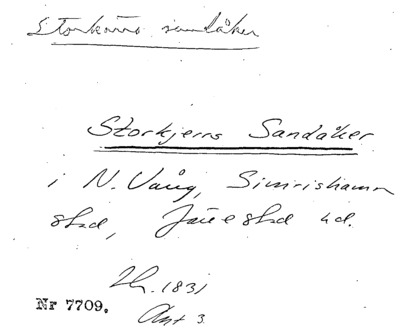 Storkärns sandåker
Storkjerns Sandåker
i N. Vång, Simrishamn
stad, Järrestad hd.
Lh. 1831
Akt 3.
Nr 7709.